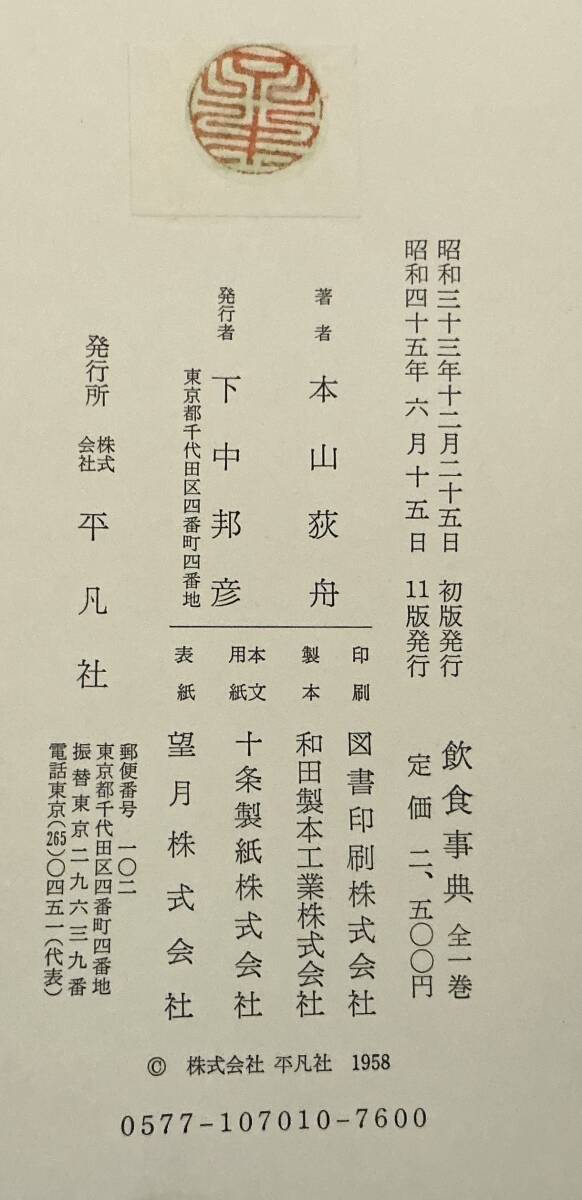 昭和三十三年十二月二十五日 初版発行
昭和四十五年 六 月 十 五 日 11版発行
飲食事典 全一巻
定価 二、五〇〇円
著者 本山荻舟
発行者 下中邦彦
東京都千代田区四番町四番地
印刷 図書印刷株式会社
製本 和田製本工業株式会社
本文用紙 十条製紙株式会社
表紙 望月株式会社
発行所 株式会社 平凡社
郵便番号 一〇二
東京都千代田区四番町四番地
振替東京二九六三九番
電話東京(265)〇四五一(代表)
© 株式会社 平凡社 1958
0577-107010-7600